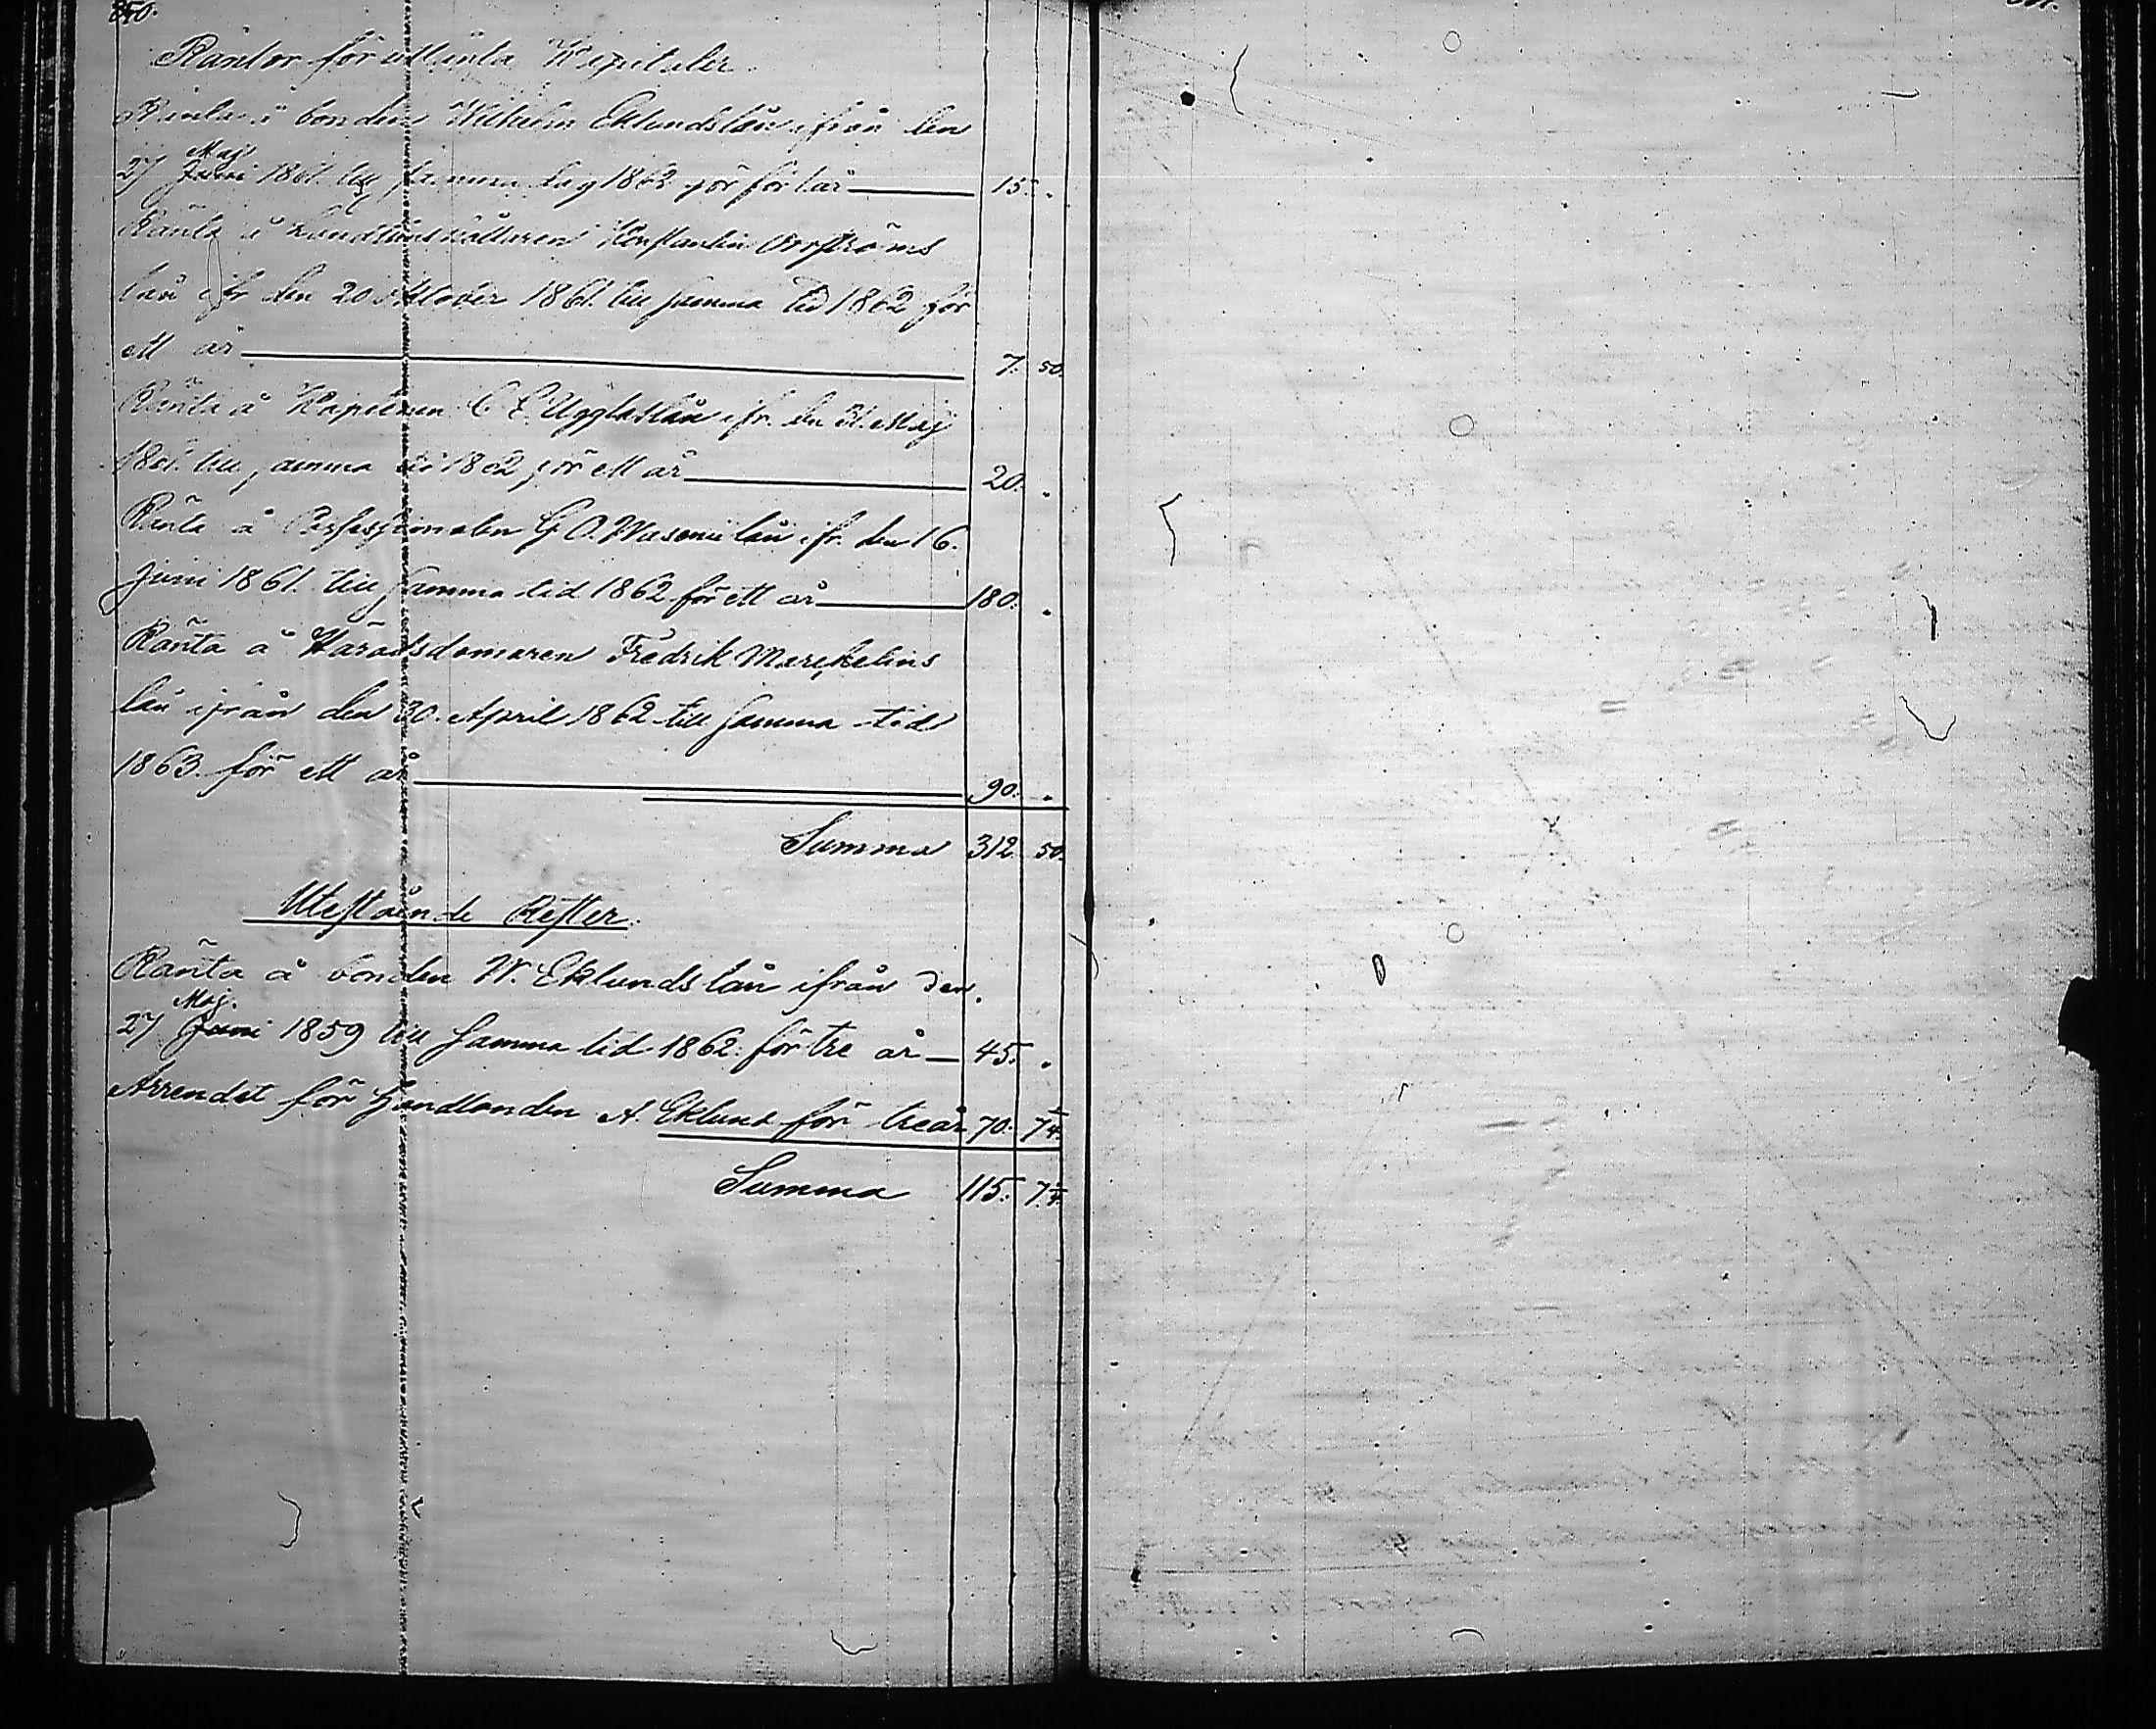 Räntor för utlänta Kapitaler.
Ränta å bonden Wilhelm Eklunds lån ifrån den
Maj
27 Juni 1861. till samma dag 1862 för för 1 år 15. "
Ränta å Konstantin Orrströms
lån ifr den 20 oktober 1861. till samma tid 1862 för
ett år 7. 50.
Ränta å Kapitenen C. E. Ugglas lån ifr. den 31. Maj
1861. till samma tid 1862 för ett år 20. "
Ränta å G. O. Wasenii lån ifr. den 16.
Juni 1861. till samma tid 1862 för ett år 180. "
Ränta å Häradsdomaren Fredrik Marckelins
lån ifrån den 30. April 1862 till samma tid
1863. för ett år 90. "
Summa 312. 50.
Utestående Rester.
Ränta å bonden W. Eklunds lån ifrån den.
Maj.
27 Juni 1859 till samma tid 1862: för tre år 45. "
Arrendet för Handlanden A. Eklund för tre år 70. 7 1/4.
Summa 115. 7 1/4.